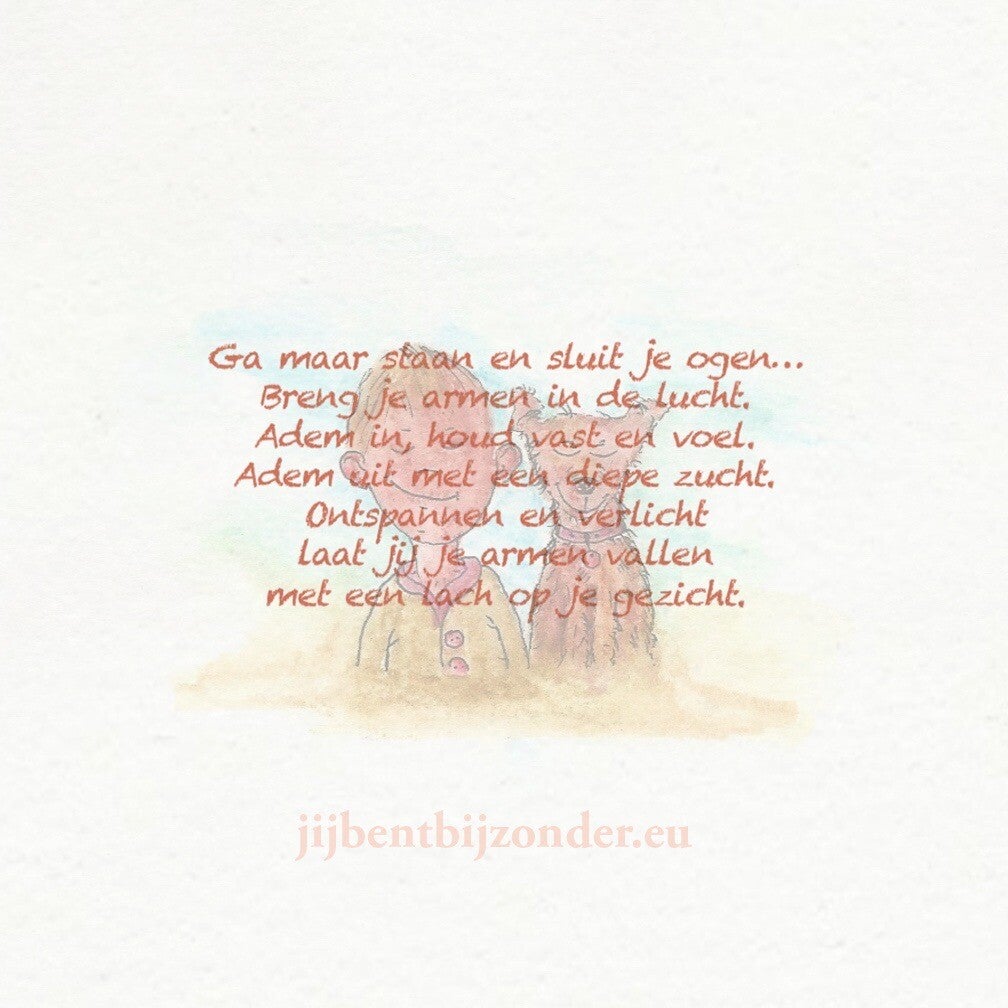 Ga maar staan en sluit je ogen...
Breng je armen in de lucht.
Adem in, houd vast en voel.
Adem uit met een diepe zucht.
Ontspannen en verlicht
laat jij je armen vallen
met een lach op je gezicht.
jijbentbijzonder.eu